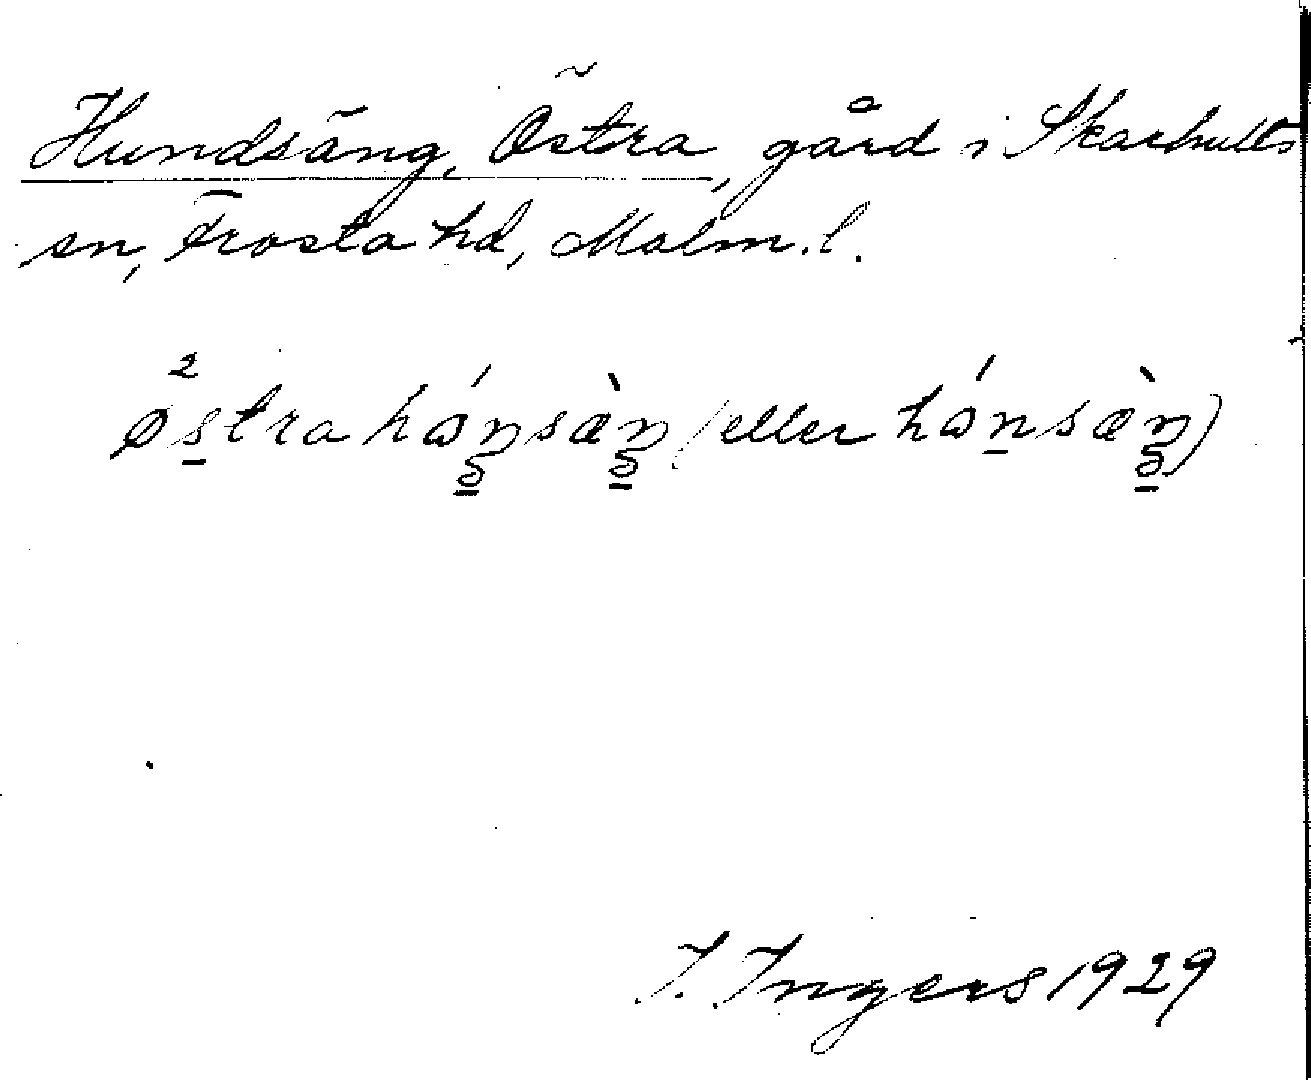 Hundsäng, Östra, gård i Skarhults
sn, Frosta hd, Malm. l.
²östra hónsæ̀n (eller hónsæ̀n)
I. Ingers 1929